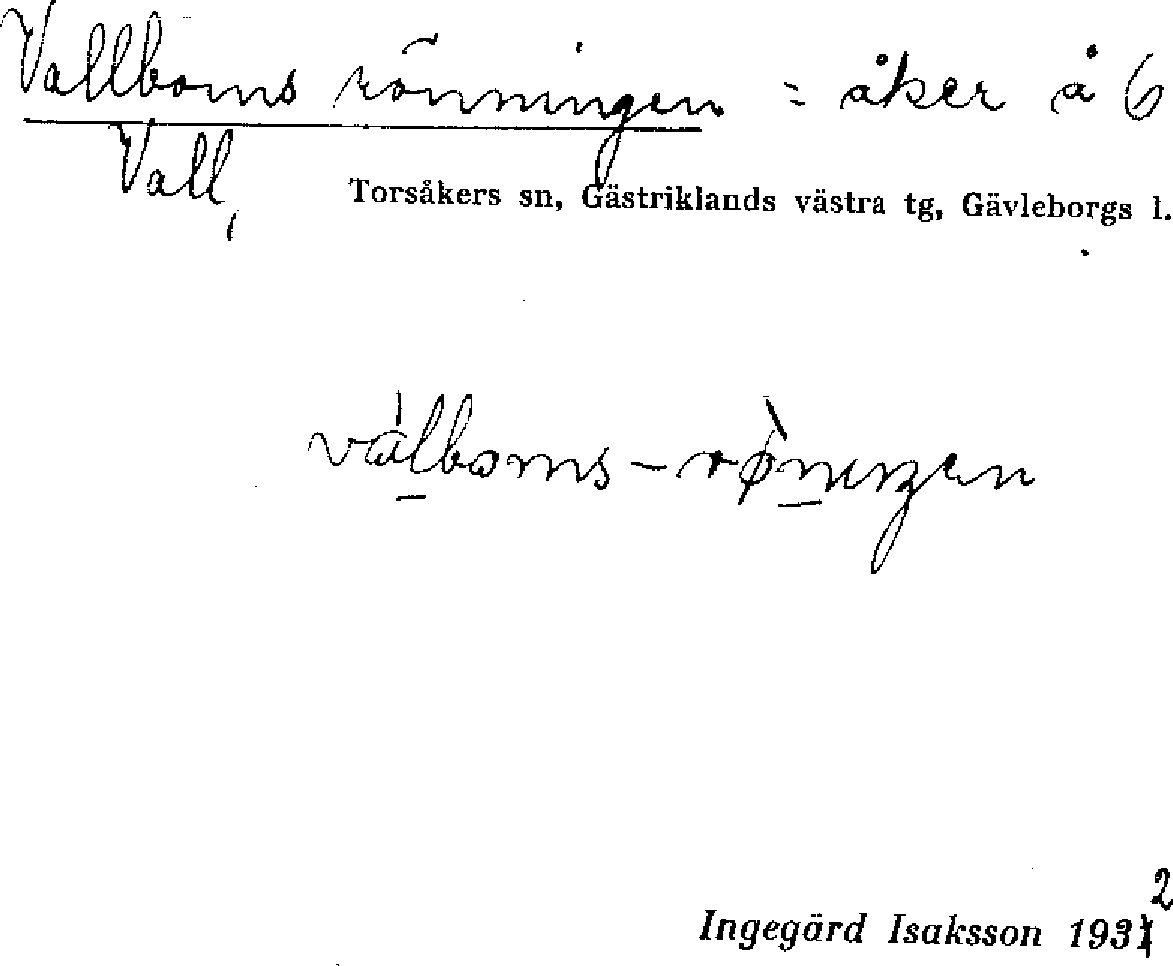 Vallboms rönningen = åker å 6
Vall, Torsåkers sn, Gästriklands västra tg, Gävleborgs l.
vàlboms-rø̀nıŋen
Ingegärd Isaksson 1932